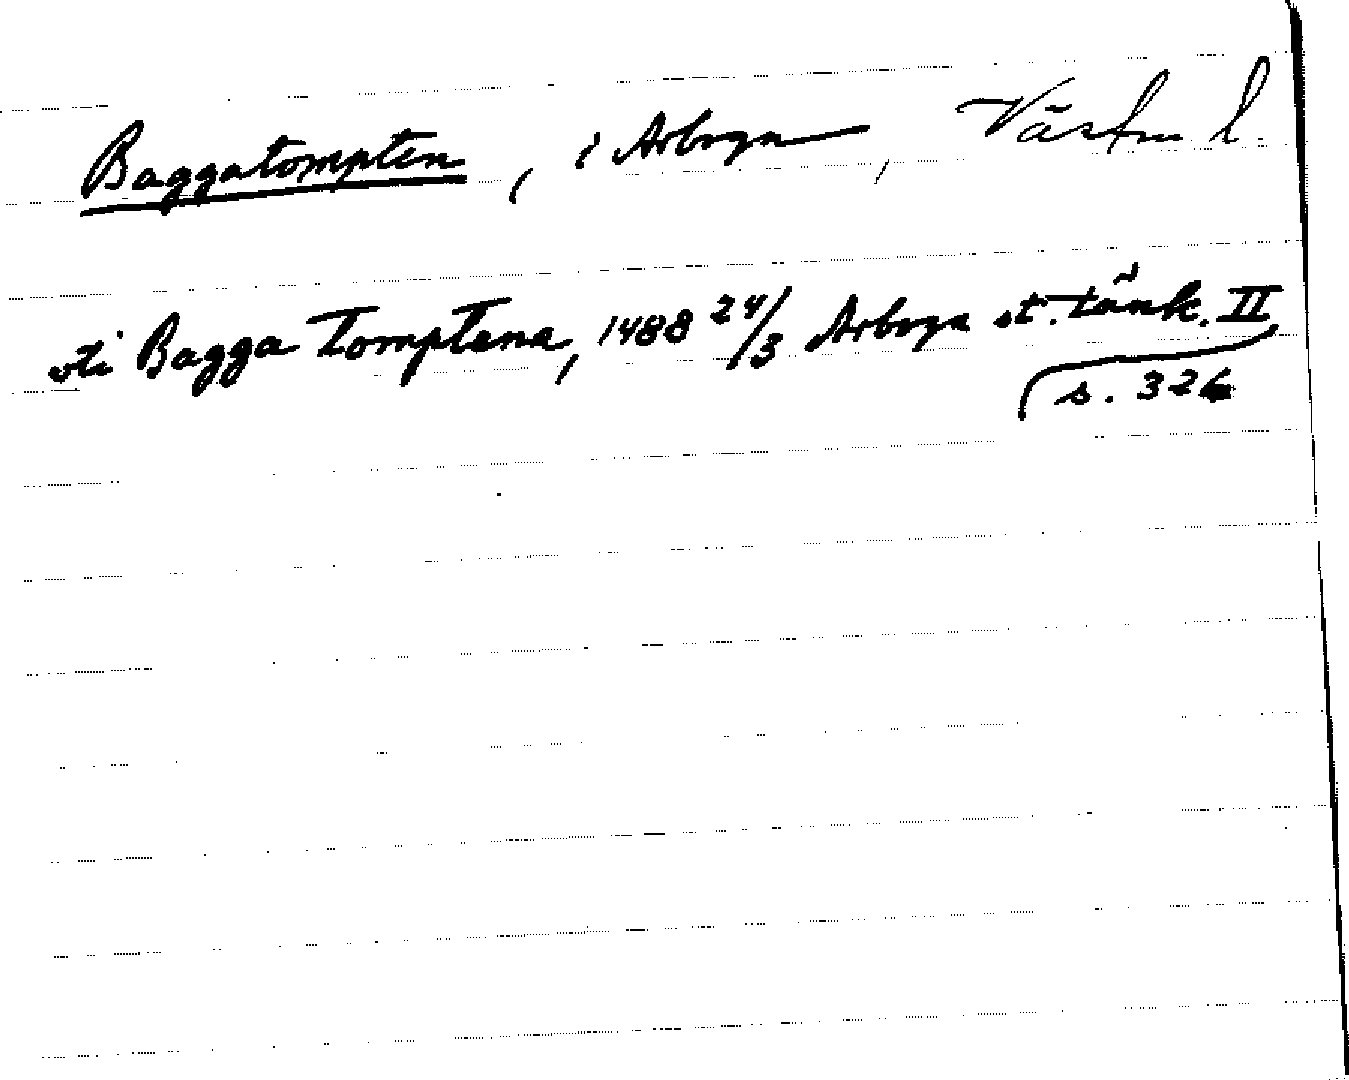 Baggatompten, i Arboga, Västm l.
oti Bagga Tomptena, 1488 24/3 Arboga st. tänk. II
s. 326